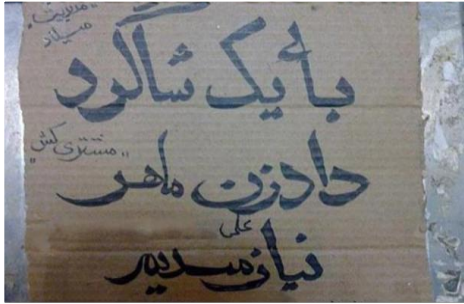 "مدیریت"
میلاد
بائے یک شاگرد
"مشتری کش"
دادزن ماهر
علی
نیازمندیم